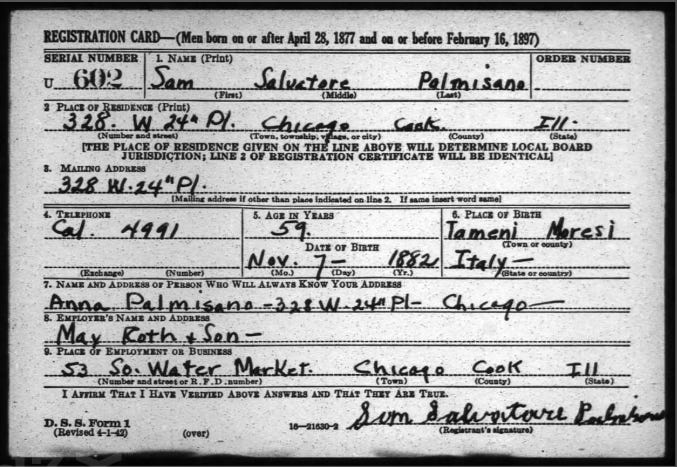 REGISTRATION CARD—(Men born on or after April 28, 1877 and on or before February 16, 1897)
SERIAL NUMBER 1. NAME (Print) ORDER NUMBER
U 602 Sam Salvatore Palmisano
(First) (Middle) (Last)
2 PLACE OF RESIDENCE (Print)
328. W 24th Pl. Chicago Cook. Ill.
(Number and street) (Town, township, village, or city) (County) (State)
[THE PLACE OF RESIDENCE GIVEN ON THE LINE ABOVE WILL DETERMINE LOCAL BOARD
JURISDICTION; LINE 2 OF REGISTRATION CERTIFICATE WILL BE IDENTICAL]
3. MAILING ADDRESS
328 W. 24th Pl.
[Mailing address if other than place indicated on line 2. If same insert word same]
4. TELEPHONE 5. AGE IN YEARS 6. PLACE OF BIRTH
Cal. 4991 59. Tameni Moresi
DATE OF BIRTH (Town or county)
Nov. 7- 1882 Italy—
(Exchange) (Number) (Mo.) (Day) (Yr.) (State or country)
7. NAME AND ADDRESS OF PERSON WHO WILL ALWAYS KNOW YOUR ADDRESS
Anna Palmisano - 328 W. 24th Pl- Chicago—
8. EMPLOYER'S NAME AND ADDRESS
May Roth & Son—
9. PLACE OF EMPLOYMENT OR BUSINESS
53 So. Water Market. Chicago Cook Ill
(Number and street or R. F. D. number) (Town) (County) (State)
I AFFIRM THAT I HAVE VERIFIED ABOVE ANSWERS AND THAT THEY ARE TRUE.
Sam Salvatore
D. S. S. Form 1
(Revised 4-1-42) (over) 16—21630-2 (Registrant's signature)